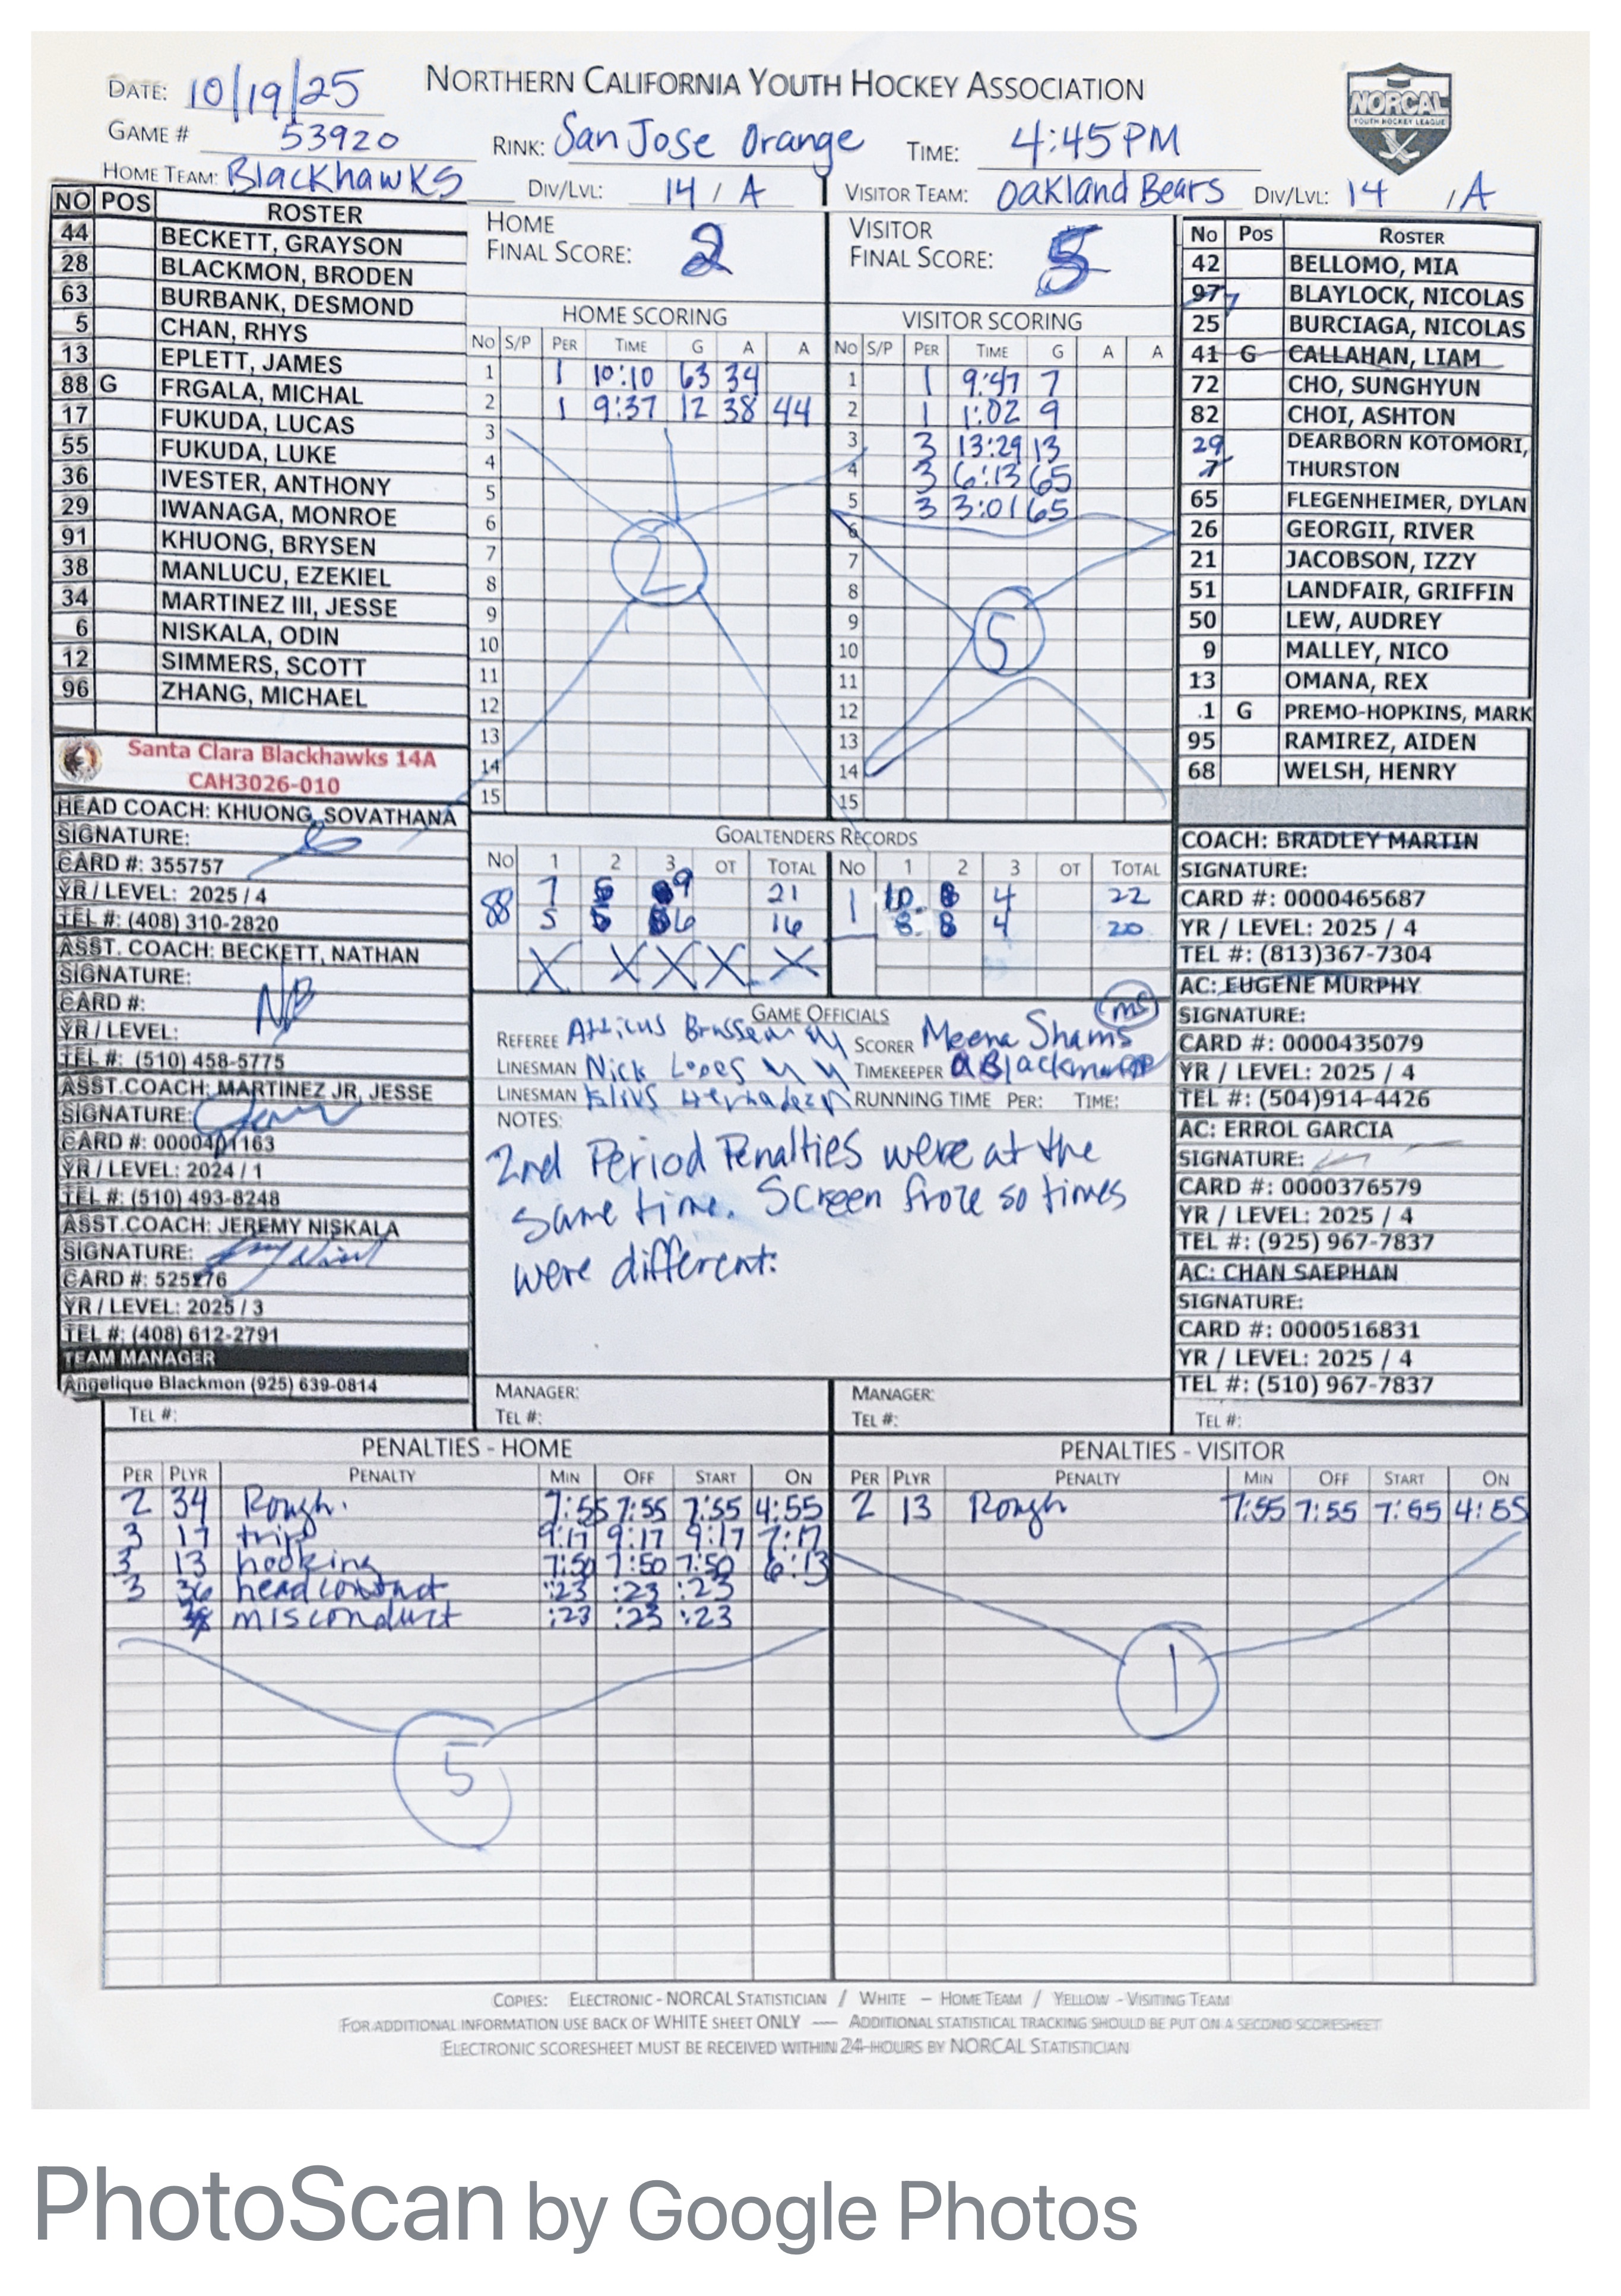 NORTHERN CALIFORNIA YOUTH HOCKEY ASSOCIATION
DATE: 10/19/25
GAME # 53920
RINK: San Jose Orange
TIME: 4:45 PM
NORCAL
YOUTH HOCKEY LEAGUE
HOME TEAM: Blackhawks
DIV/LVL: 14 / A
VISITOR TEAM: Oakland Bears
DIV/LVL: 14 / A
NO POS ROSTER
44 BECKETT, GRAYSON
28 BLACKMON, BRODEN
63 BURBANK, DESMOND
5 CHAN, RHYS
13 EPLETT, JAMES
88 G FRGALA, MICHAL
17 FUKUDA, LUCAS
55 FUKUDA, LUKE
36 IVESTER, ANTHONY
29 IWANAGA, MONROE
91 KHUONG, BRYSEN
38 MANLUCU, EZEKIEL
34 MARTINEZ III, JESSE
6 NISKALA, ODIN
12 SIMMERS, SCOTT
96 ZHANG, MICHAEL
Santa Clara Blackhawks 14A
CAH3026-010
HEAD COACH: KHUONG, SOVATHANA
SIGNATURE:
CARD #: 355757
YR / LEVEL: 2025 / 4
TEL #: (408) 310-2820
ASST. COACH: BECKETT, NATHAN
SIGNATURE:
NB
CARD #:
YR / LEVEL:
TEL #: (510) 458-5775
ASST.COACH: MARTINEZ JR, JESSE
SIGNATURE:
CARD #: 0000401163
YR / LEVEL: 2024 / 1
TEL #: (510) 493-8248
ASST.COACH: JEREMY NISKALA
SIGNATURE:
CARD #: 525276
YR / LEVEL: 2025 / 3
TEL #: (408) 612-2791
TEAM MANAGER
Angelique Blackmon (925) 639-0814
TEL #:
HOME
FINAL SCORE: 2
HOME SCORING
NO S/P PER TIME G A A
1 1 10:10 63 34
2 1 9:37 12 38 44
3
4
5
6
7
8
9
10
11
12
13
14
15
2
VISITOR
FINAL SCORE: 5
VISITOR SCORING
NO S/P PER TIME G A A
1 1 9:47 7
2 1 1:02 9
3 3 13:29 13
4 3 6:13 65
5 3 3:01 65
6
7
8
9
10
11
12
13
14
15
5
GOALTENDERS RECORDS
NO 1 2 3 OT TOTAL
88 7 5 9 21
5 5 6 16
X X X X X
NO 1 2 3 OT TOTAL
1 10 8 4 22
8 8 4 20
GAME OFFICIALS
REFEREE Atticus
SCORER Meena Shams
MS
LINESMAN Nick Lopes
TIMEKEEPER A Blackmon
LINESMAN Hernandez
RUNNING TIME PER: TIME:
NOTES:
2nd Period Penalties were at the
same time. Screen froze so times
were different.
MANAGER:
TEL #:
MANAGER:
TEL #:
No Pos ROSTER
42 BELLOMO, MIA
97 7 BLAYLOCK, NICOLAS
25 BURCIAGA, NICOLAS
41 G CALLAHAN, LIAM
72 CHO, SUNGHYUN
82 CHOI, ASHTON
29 DEARBORN KOTOMORI,
7 THURSTON
65 FLEGENHEIMER, DYLAN
26 GEORGII, RIVER
21 JACOBSON, IZZY
51 LANDFAIR, GRIFFIN
50 LEW, AUDREY
9 MALLEY, NICO
13 OMANA, REX
1 G PREMO-HOPKINS, MARK
95 RAMIREZ, AIDEN
68 WELSH, HENRY
COACH: BRADLEY MARTIN
SIGNATURE:
CARD #: 0000465687
YR / LEVEL: 2025 / 4
TEL #: (813)367-7304
AC: EUGENE MURPHY
SIGNATURE:
CARD #: 0000435079
YR / LEVEL: 2025 / 4
TEL #: (504)914-4426
AC: ERROL GARCIA
SIGNATURE:
CARD #: 0000376579
YR / LEVEL: 2025 / 4
TEL #: (925) 967-7837
AC: CHAN SAEPHAN
SIGNATURE:
CARD #: 0000516831
YR / LEVEL: 2025 / 4
TEL #: (510) 967-7837
TEL #:
PENALTIES - HOME
PER PLYR PENALTY MIN OFF START ON
2 34 Rough. 7:55 7:55 7:55 4:55
3 17 trip 9:17 9:17 9:17 7:17
3 13 hooking 7:50 7:50 7:50 6:13
3 36 head contact :23 :23 :23
misconduct :23 :23 :23
5
PENALTIES - VISITOR
PER PLYR PENALTY MIN OFF START ON
2 13 Rough 7:55 7:55 7:55 4:55
1
COPIES: ELECTRONIC - NORCAL STATISTICIAN / WHITE – HOME TEAM / YELLOW - VISITING TEAM
FOR ADDITIONAL INFORMATION USE BACK OF WHITE SHEET ONLY — ADDITIONAL STATISTICAL TRACKING SHOULD BE PUT ON A SECOND SCORESHEET
ELECTRONIC SCORESHEET MUST BE RECEIVED WITHIN 24-HOURS BY NORCAL STATISTICIAN
PhotoScan by Google Photos